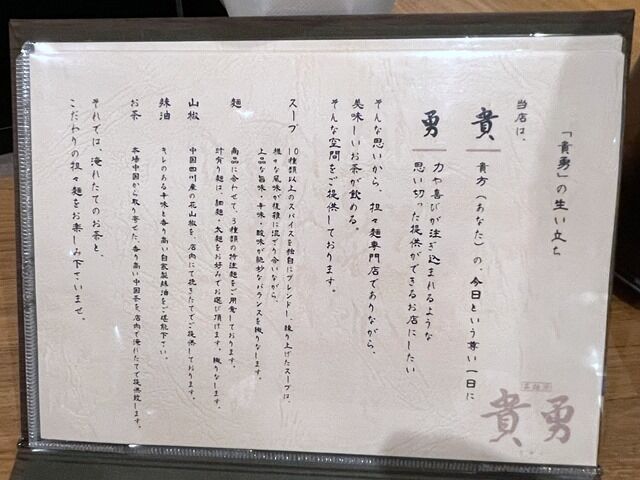 「貴勇」の生い立ち
当店は、
貴 貴方(あなた)の、今日という尊い一日に
勇 力や喜びが注ぎ込まれるような
思い切った提供ができるお店にしたい
そんな思いから、担々麺専門店でありながら、
美味しいお茶が飲める。
そんな空間をご提供しております。
スープ 10種類以上のスパイスを独自にブレンドし、練り上げたスープは、
様々な風味が複雑に混ざり合いながら、
上品な旨味・辛味・酸味が絶妙なバランスを織りなします。
麺 商品に合わせて、3種類の特注麺をご用意しております。
汁有り麺は、細麺・太麺をお好みでお選び頂けます。
山椒 中国四川産の花山椒を、店内にて挽きたてでご提供しております。
辣油 キレのある辛味と香り高い自家製辣油をご堪能下さい。
お茶 本場中国から取り寄せた、香り高い中国茶を店内で淹れたてで提供致します。
それでは、淹れたてのお茶と、
こだわりの担々麺をお楽しみ下さいませ。
貴勇